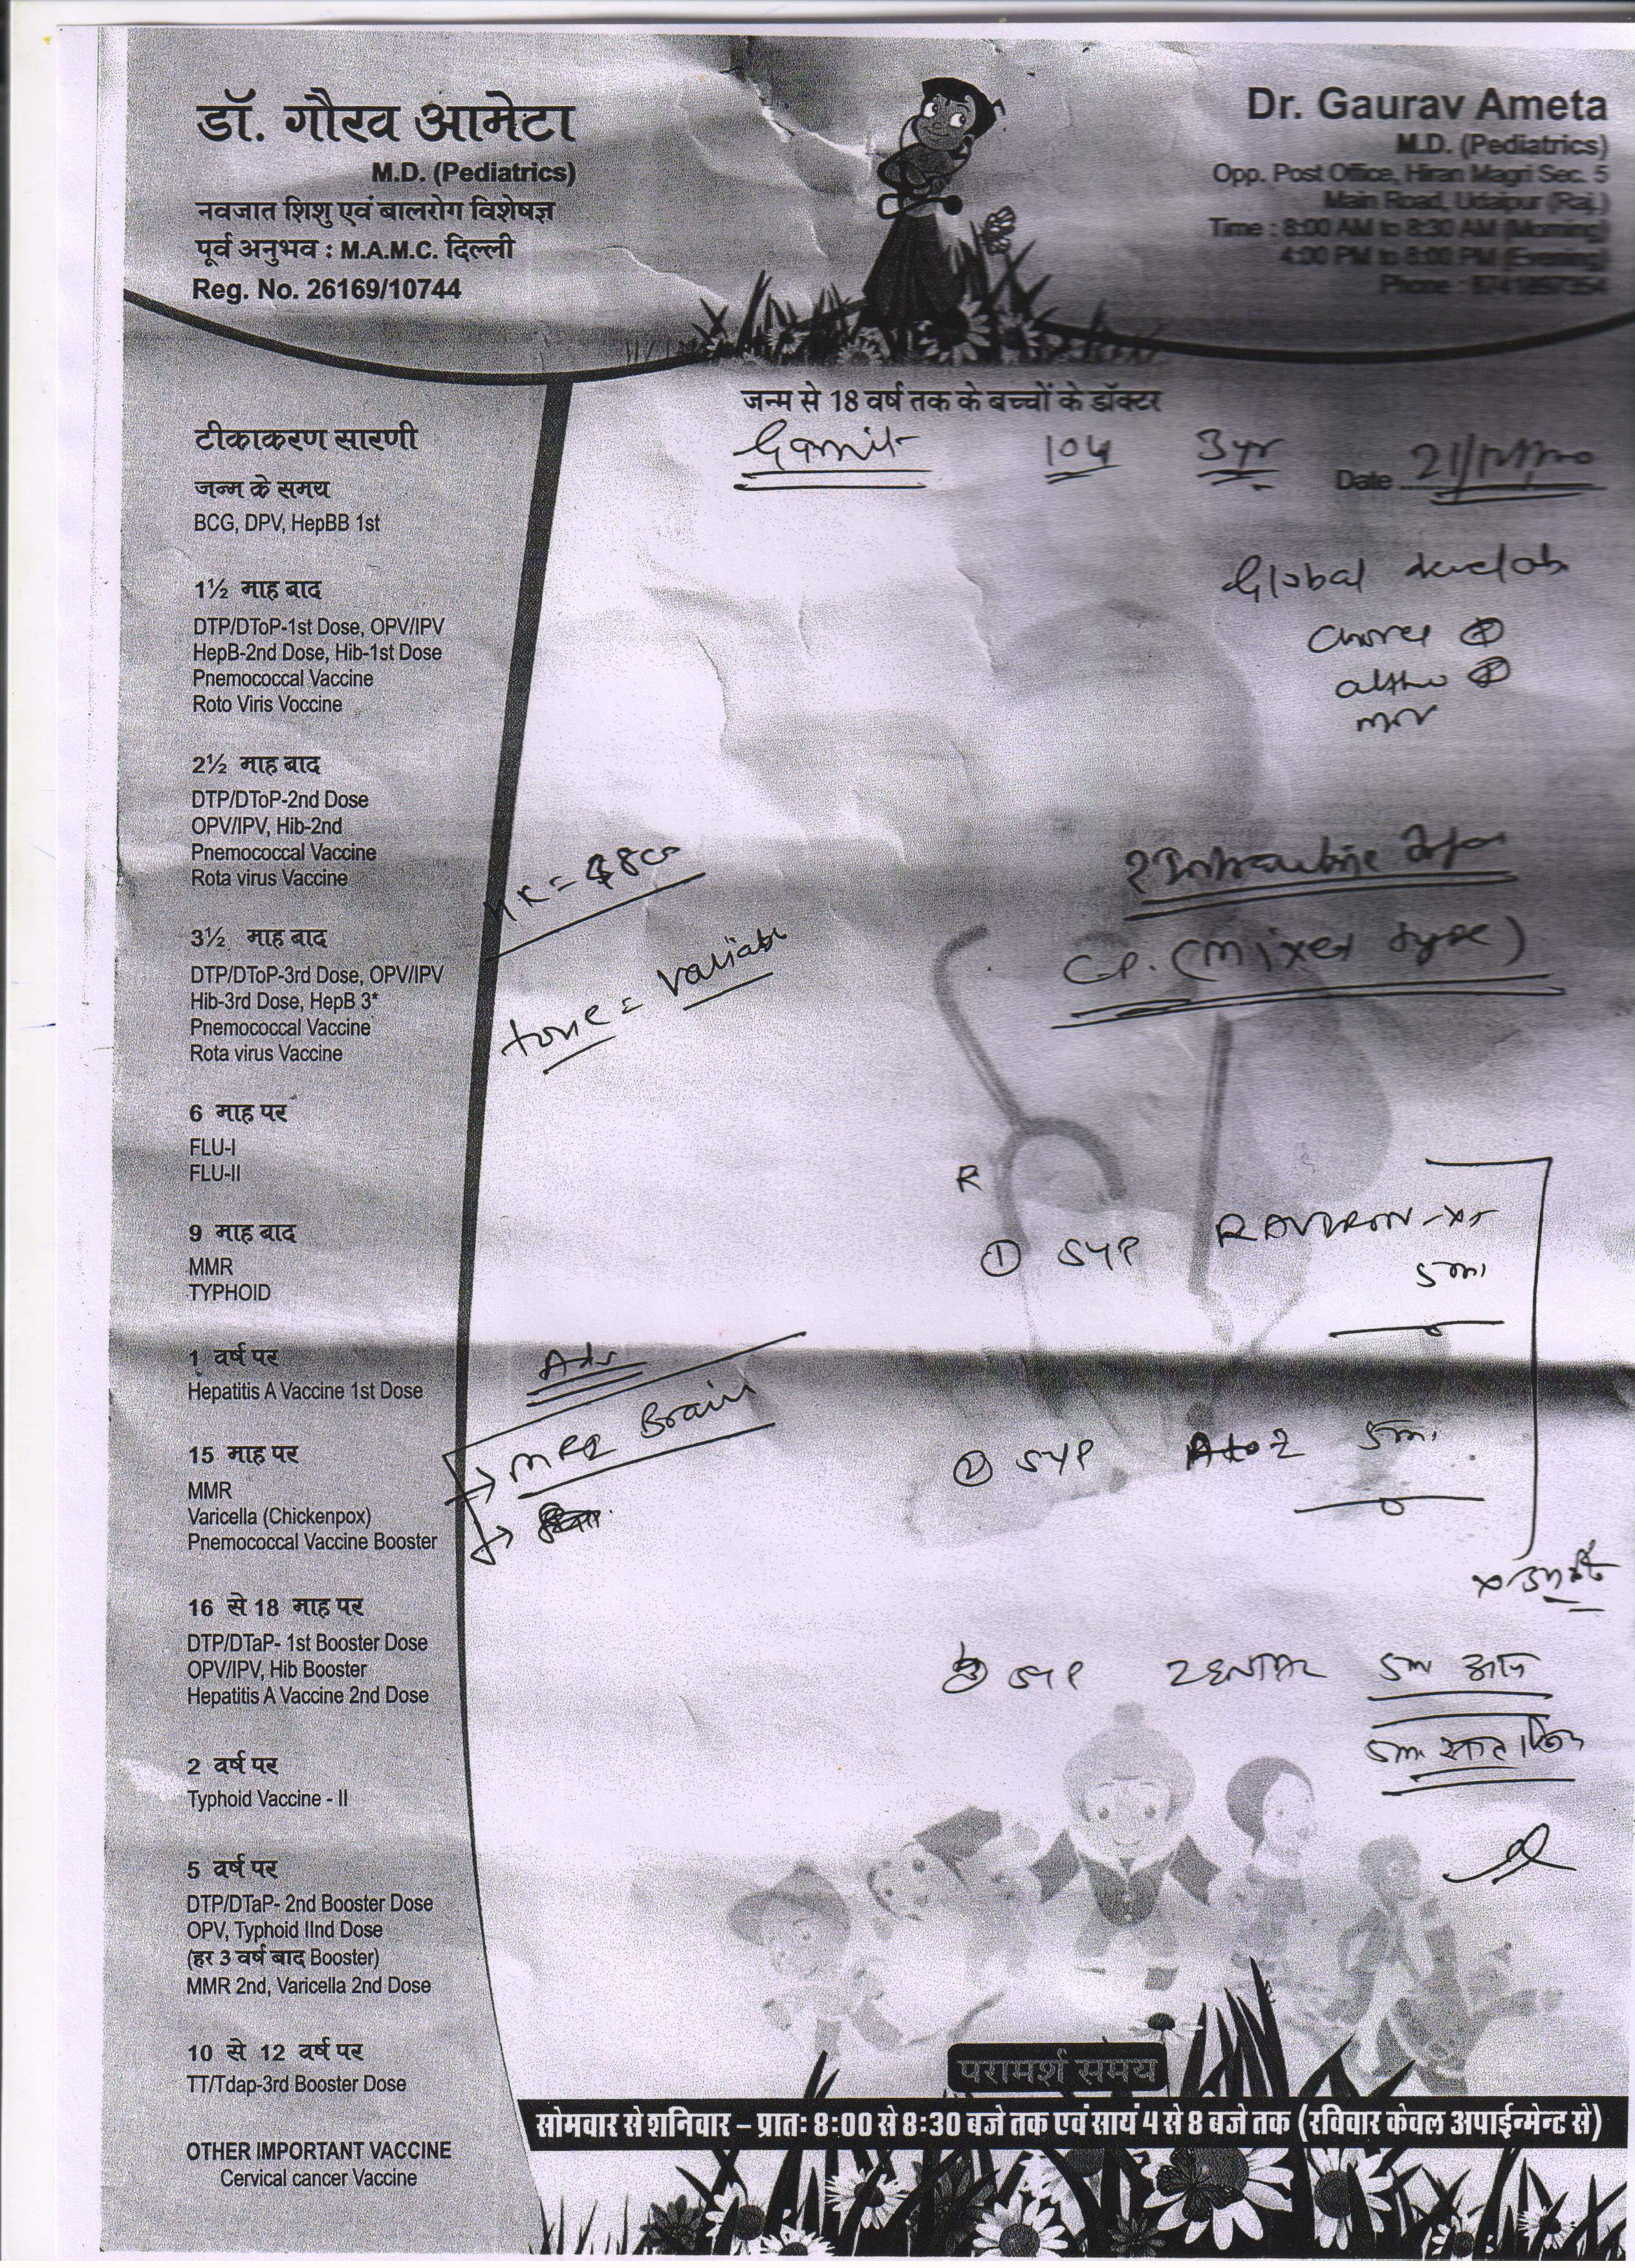 डॉ. गौरव आमेटा
M.D. (Pediatrics)
नवजात शिशु एवं बालरोग विशेषज्ञ
पूर्व अनुभव : M.A.M.C. दिल्ली
Reg. No. 26169/10744
Dr. Gaurav Ameta
M.D. (Pediatrics)
Opp. Post Office, Hiran Magri Sec. 5
Main Road, Udaipur (Raj.)
Time : 8:00 AM to 8:30 AM (Morning)
4:00 PM to 8:00 PM (Evening)
Phone :
जन्म से 18 वर्ष तक के बच्चों के डॉक्टर
3yr Date
टीकाकरण सारणी
जन्म के समय
BCG, DPV, HepBB 1st
1½ माह बाद
DTP/DToP-1st Dose, OPV/IPV
HepB-2nd Dose, Hib-1st Dose
Pnemococcal Vaccine
Roto Viris Voccine
2½ माह बाद
DTP/DToP-2nd Dose
OPV/IPV, Hib-2nd
Pnemococcal Vaccine
Rota virus Vaccine
3½ माह बाद
DTP/DToP-3rd Dose, OPV/IPV
Hib-3rd Dose, HepB 3*
Pnemococcal Vaccine
Rota virus Vaccine
6 माह पर
FLU-I
FLU-II
9 माह बाद
MMR
TYPHOID
1 वर्ष पर
Hepatitis A Vaccine 1st Dose
15 माह पर
MMR
Varicella (Chickenpox)
Pnemococcal Vaccine Booster
16 से 18 माह पर
DTP/DTaP- 1st Booster Dose
OPV/IPV, Hib Booster
Hepatitis A Vaccine 2nd Dose
2 वर्ष पर
Typhoid Vaccine - II
5 वर्ष पर
DTP/DTaP- 2nd Booster Dose
OPV, Typhoid IInd Dose
(हर 3 वर्ष बाद Booster)
MMR 2nd, Varicella 2nd Dose
10 से 12 वर्ष पर
TT/Tdap-3rd Booster Dose
OTHER IMPORTANT VACCINE
Cervical cancer Vaccine
Global
C.P. (Mixed type)
tone = variable
Adv
Brain
R
① SYP
5ml
② SYP A to Z 5ml
③ SYP ZENTAL 5ml आज
5ml सात दिन
परामर्श समय
सोमवार से शनिवार – प्रातः 8:00 से 8:30 बजे तक एवं सायं 4 से 8 बजे तक (रविवार केवल अपाईन्मेन्ट से)